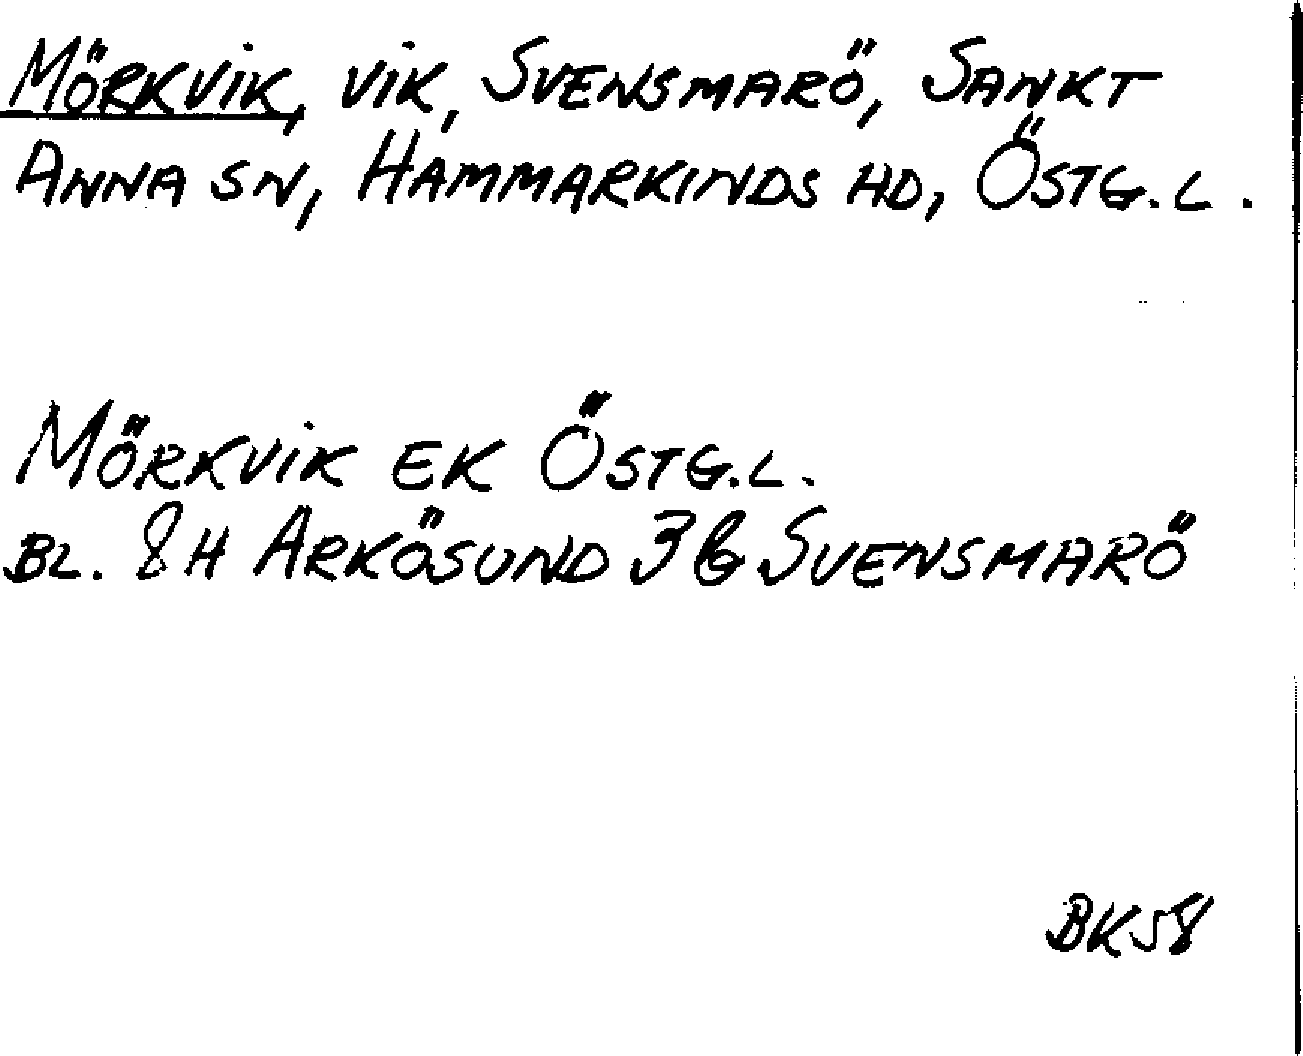 MÖRKVIK, VIK, SVENSMARÖ, SANKT
ANNA SN, HAMMARKINDS HD, ÖSTG.L.
MÖRKVIK EK ÖSTG.L.
BL. 8H ARKÖSUND 3b SVENSMARÖ
BK58